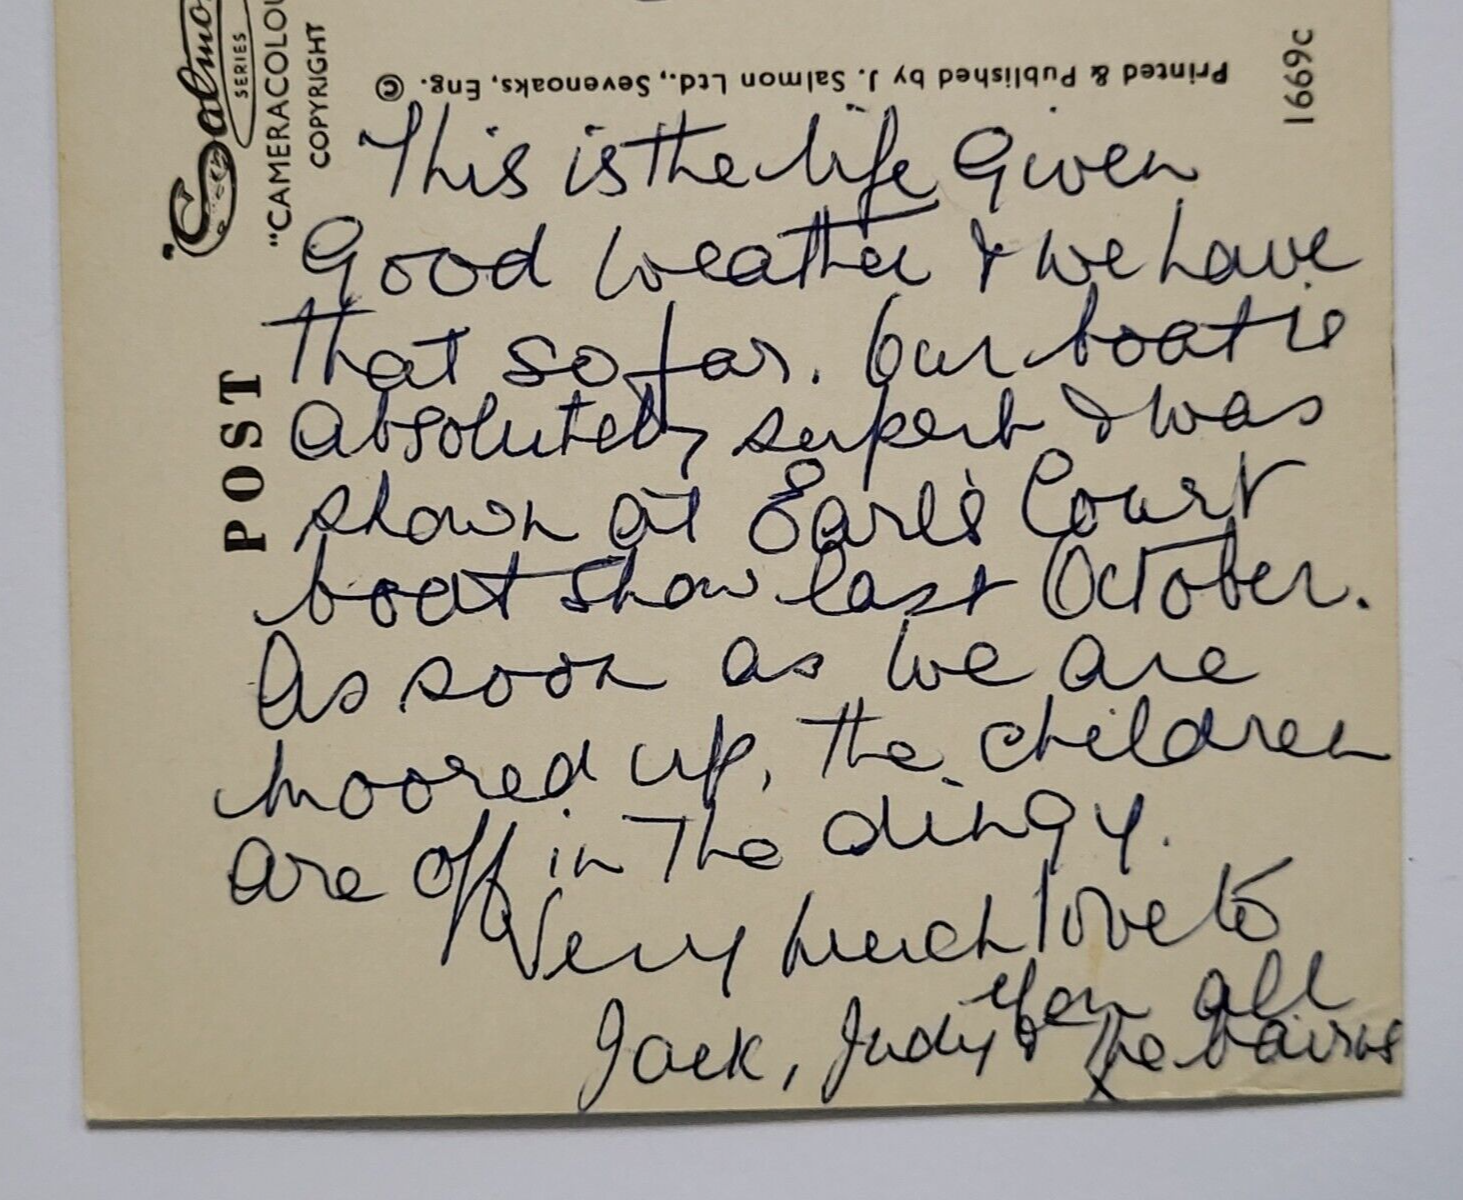 Salmo
SERIES
"CAMERACOLOU
COPYRIGHT
POST
Printed & Published by J. Salmon Ltd., Sevenoaks, Eng. ©
1669c
This is the life given
Good weather & we have
that so far. Our boat is
absolutely superb & was
shown at Earl's Court
boat show last October.
As soon as we are
moored up, the children
are off in the dingy.
Very much love to
you all
Jack, Judy & the bairns